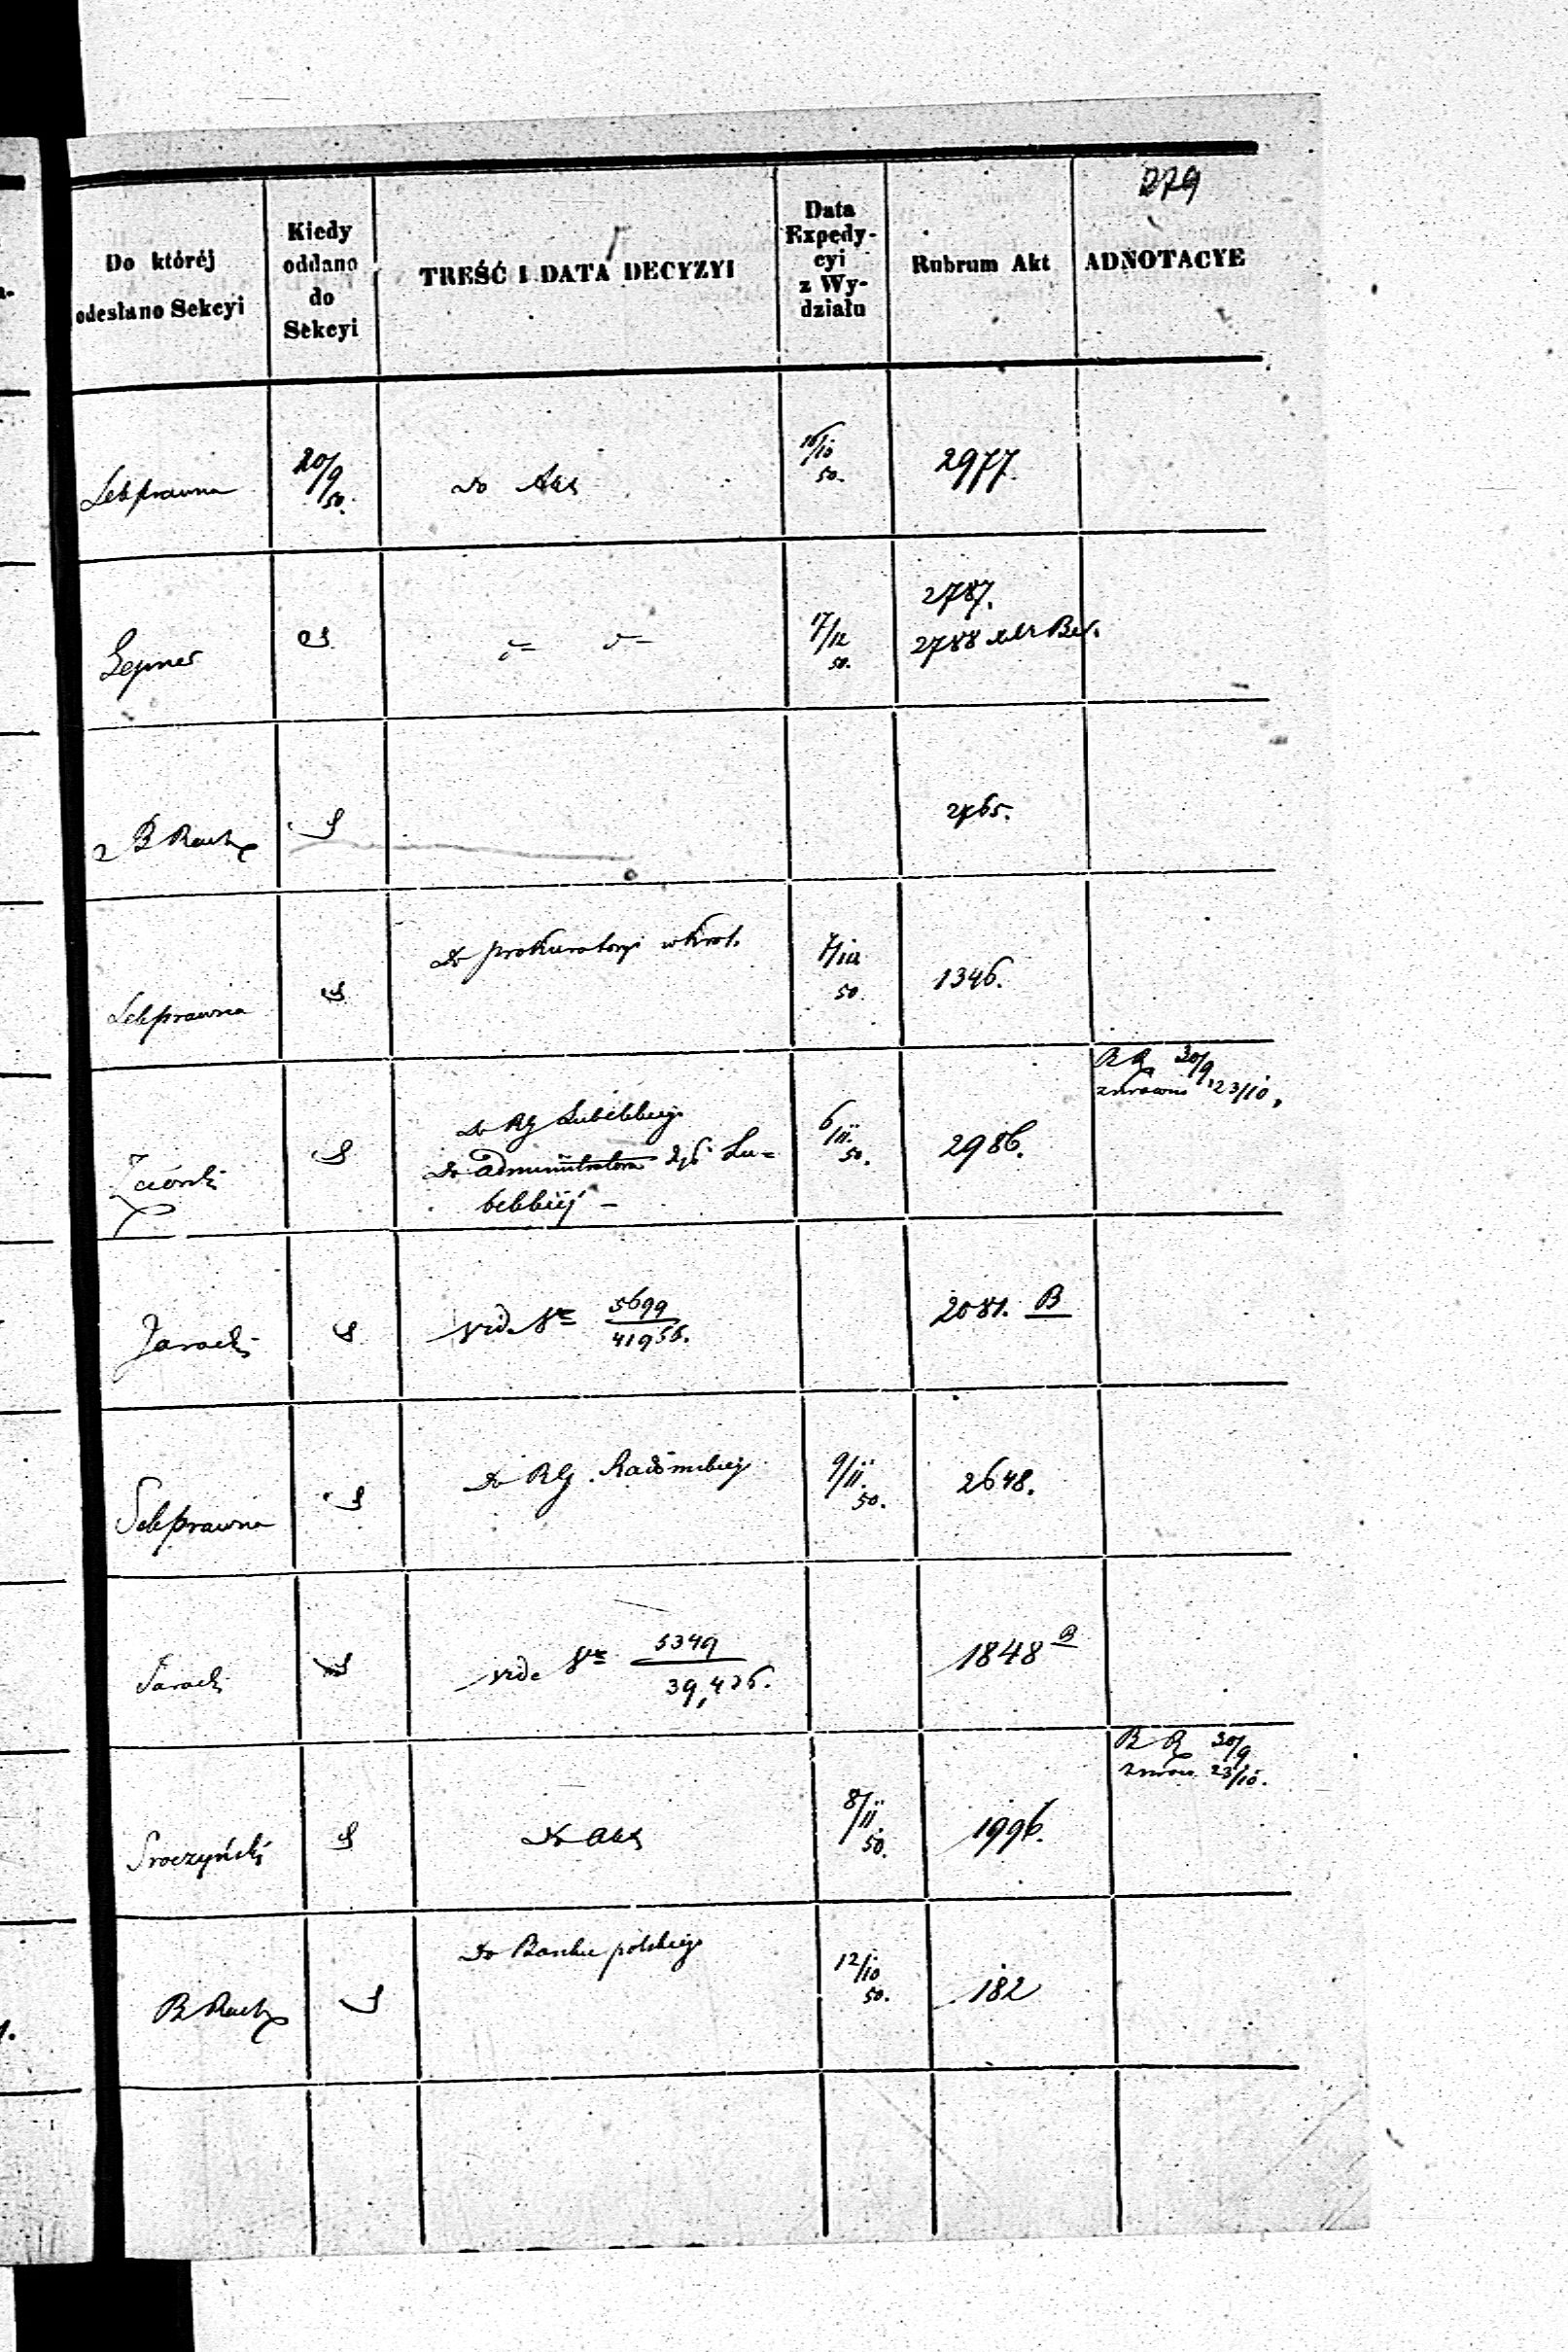 279
Do któréj
odesłano Sekcyi
Kiedy
oddano
do
Sekcyi
TREŚĆ I DATA DECYZYI
Data
Expedy-
cyi
z Wy-
działu
Rubrum Akt
ADNOTACYE
Sekprawna
20/9
50.
do Akt
16/10
50.
2977.
17/12
50.
2787.
2788
B Rach
2765.
Sekprawna
do prokuratoryi
50.
1346.
do RG Lubelskiego
do administratora Lu=
belskiéj
6/11
50.
2986.
30/9
23/10
Jaracki
vide
5699
41956.
2081. B
Sekprawna
do RG. Radomskiego
9/11
50.
2648.
Jaracki
vide
5349
39,426.
1848 B
Sroczyński
do akt
8/11
50.
1996.
30/9
23/10.
B Rach
do Banku polskiego
12/10
50.
182